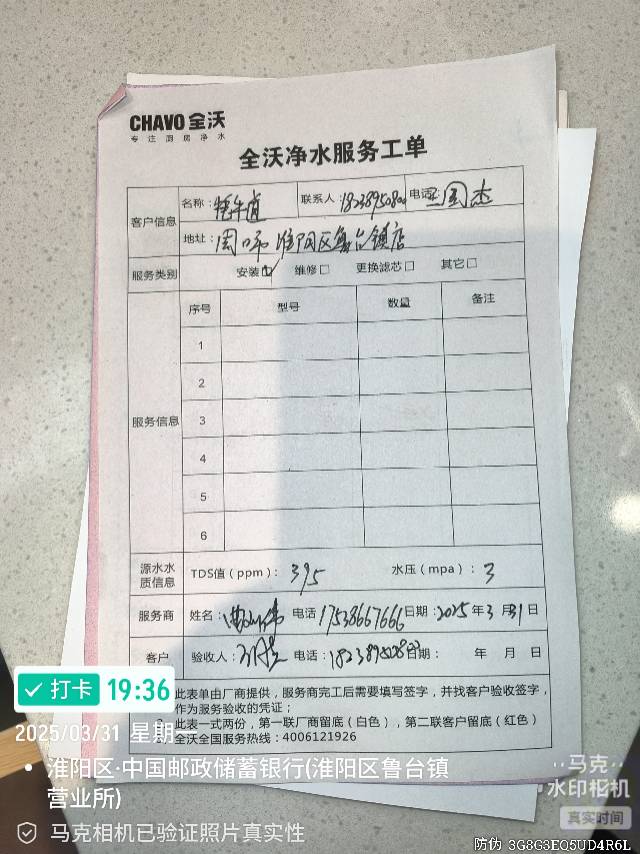 CHAVO 全沃
专注厨房净水
全沃净水服务工单
客户信息
名称：
联系人：
电话：国杰
地址：周口市淮阳区鲁台镇店
服务类别
安装☑ 维修□ 更换滤芯□ 其它□
服务信息
序号 型号 数量 备注
1
2
3
4
5
6
源水水质信息
TDS值（ppm）：395 水压（mpa）：3
服务商 姓名： 电话 17538667666 日期：2025年3月31日
客户 验收人： 电话： 日期： 年 月 日
此表单由厂商提供，服务商完工后需要填写签字，并找客户验收签字，
作为服务验收的凭证；
此表一式两份，第一联厂商留底（白色），第二联客户留底（红色）
全沃全国服务热线：4006121926
打卡 19:36
2025/03/31 星期一
淮阳区·中国邮政储蓄银行(淮阳区鲁台镇
营业所)
马克相机已验证照片真实性
马克
水印相机
真实时间
防伪 3G8G3EQ5UD4R6L